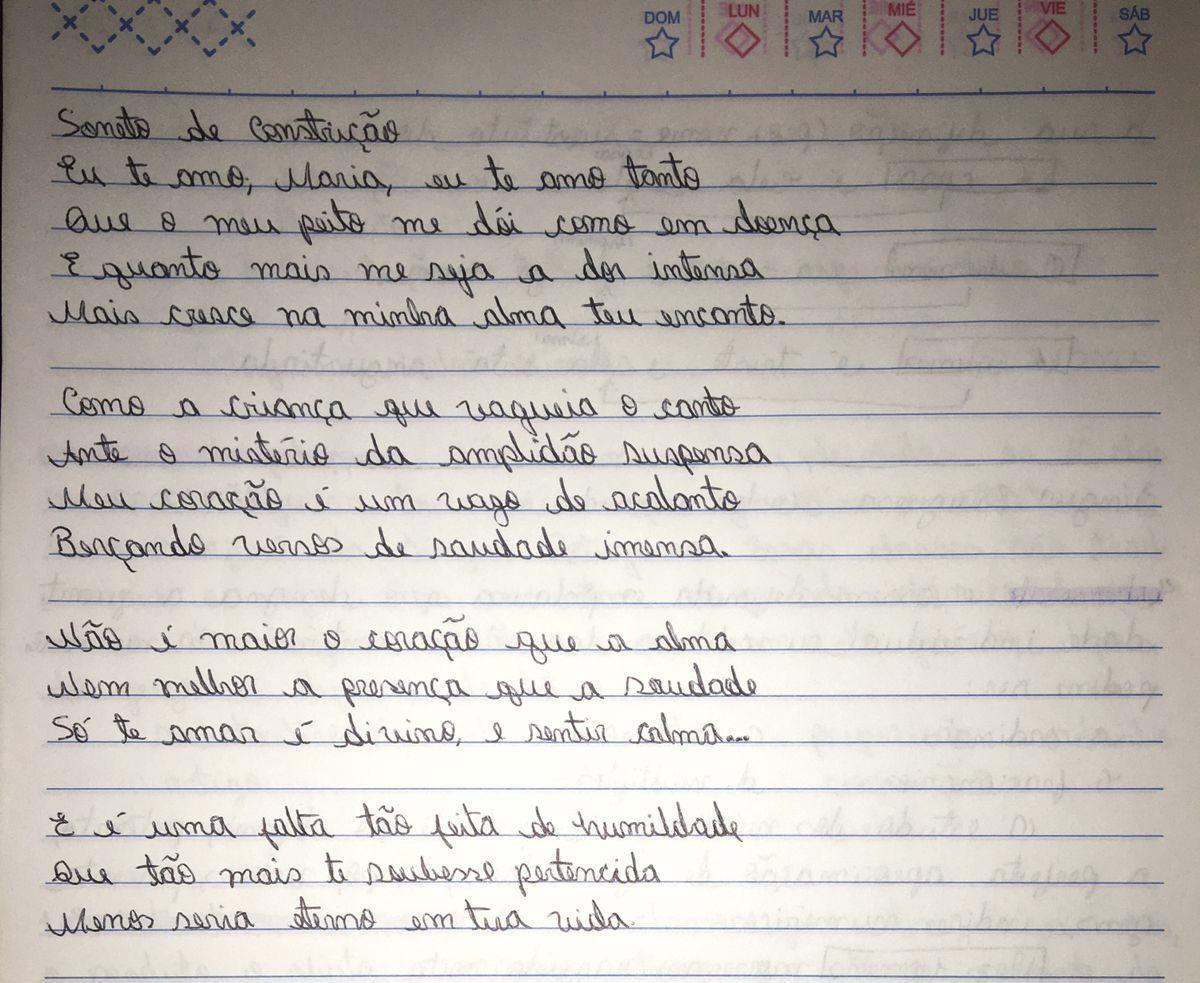 DOM LUN MAR MIÉ JUE VIE SÁB
Soneto de Construção
Eu te amo, Maria, eu te amo tanto
Que o meu peito me dói como em doença
E quanto mais me seja a dor intensa
Mais cresce na minha alma teu encanto.
Como a criança que vagueia o canto
Ante o mistério da amplidão suspensa
Meu coração é um vago de acalanto
Berçando versos de saudade imensa.
Não é maior o coração que a alma
Nem melhor a presença que a saudade
Só te amar é divino, e sentir calma...
E é uma falta tão feita de humildade
Que tão mais te soubesse pertencida
Menos seria eterno em tua vida.